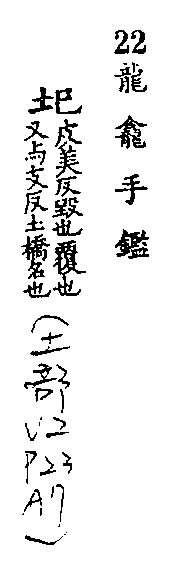 22龍龕手鑑
圯皮美反毀也覆也
又与支反土橋名也
(土部
V2
P23
A7)